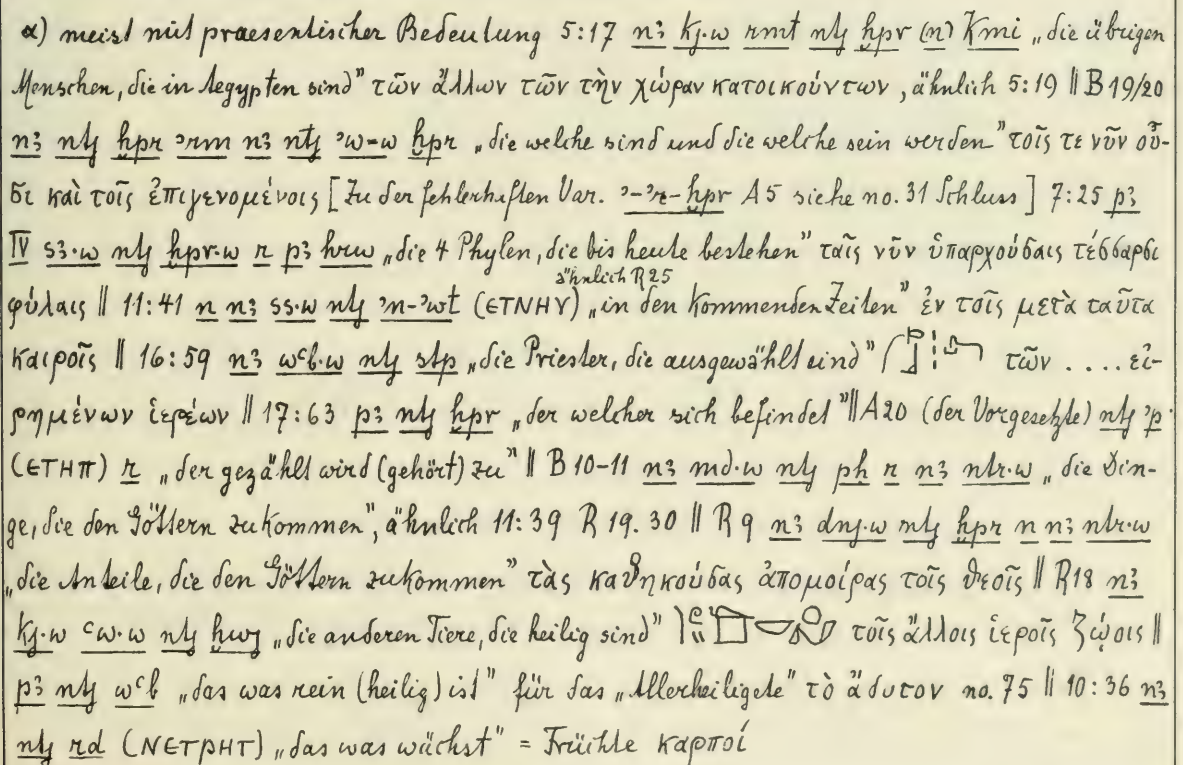 α) meist mit praesentischer Bedeutung 5:17 nꜣ kj.w rmt ntj ḫpr (n) Kmi „die übrigen
Menschen, die in Aegypten sind” τῶν ἄλλων τῶν τὴν χώραν κατοικούντων, ähnlich 5:19 || B 19/20
nꜣ ntj ḫpr ʾrm nꜣ ntj ʾw-w ḫpr „die welche sind und die welche sein werden” τοῖς τε νῦν οὖ-
σι καὶ τοῖς ἐπιγενομένοις [Zu der fehlerhaften Var. ʾ-ʾr-ḫpr A5 siehe no. 31 Schluss] 7:25 pꜣ
IV sꜣ.w ntj ḫpr.w r pꜣ hrw „die 4 Phylen, die bis heute bestehen” ταῖς νῦν ὑπαρχούσαις τέσσαρσι
ähnlich R 25
φύλαις || 11:41 n nꜣ ss.w ntj ʾn-ʾwt (ⲈⲦⲚⲎⲨ) „in den kommenden Zeiten” ἐν τοῖς μετὰ ταῦτα
καιροῖς || 16:59 nꜣ wꜥb.w ntj stp „die Priester, die ausgewählt sind” τῶν .... εἰ-
ρημένων ἱερέων || 17:63 pꜣ ntj ḫpr „der welcher sich befindet” || A20 (der Vorgesetzte) ntj ʾp
(ⲈⲦⲎⲠ) r „der gezählt wird (gehört) zu” || B 10-11 nꜣ md.w ntj ph r nꜣ ntr.w „die Din-
ge, die den Göttern zukommen”, ähnlich 11:39 R 19. 30 || R 9 nꜣ dnj.w ntj ḫpr n nꜣ ntr.w
„die Anteile, die den Göttern zukommen” τὰς καθηκούσας ἀπομοίρας τοῖς θεοῖς || R18 nꜣ
kj.w ꜥw.w ntj ḫwj „die anderen Tiere, die heilig sind” τοῖς ἄλλοις ἱεροῖς ζῴοις ||
pꜣ ntj wꜥb „das was rein (heilig) ist” für das „Allerheiligste” τὸ ἄδυτον no. 75 || 10:36 nꜣ
ntj rd (ⲚⲈⲦⲢⲎⲦ) „das was wächst” = Früchte καρποί